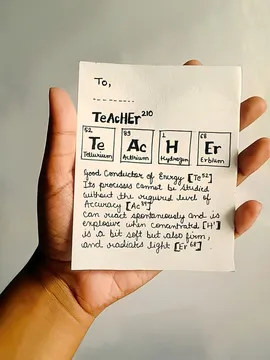 To,
TeAcHEr²¹⁰
52 89 1 68
Te Ac H Er
Tellurium Actinium Hydrogen Erbium
Good Conductor of Energy [Te⁵²]
Its processes cannot be studied
without the required level of
Accuracy [Ac⁸⁹]
Can react spontaneously and is
explosive when concentrated [H¹]
is a bit soft but also firm,
and radiates light [Er⁶⁸]